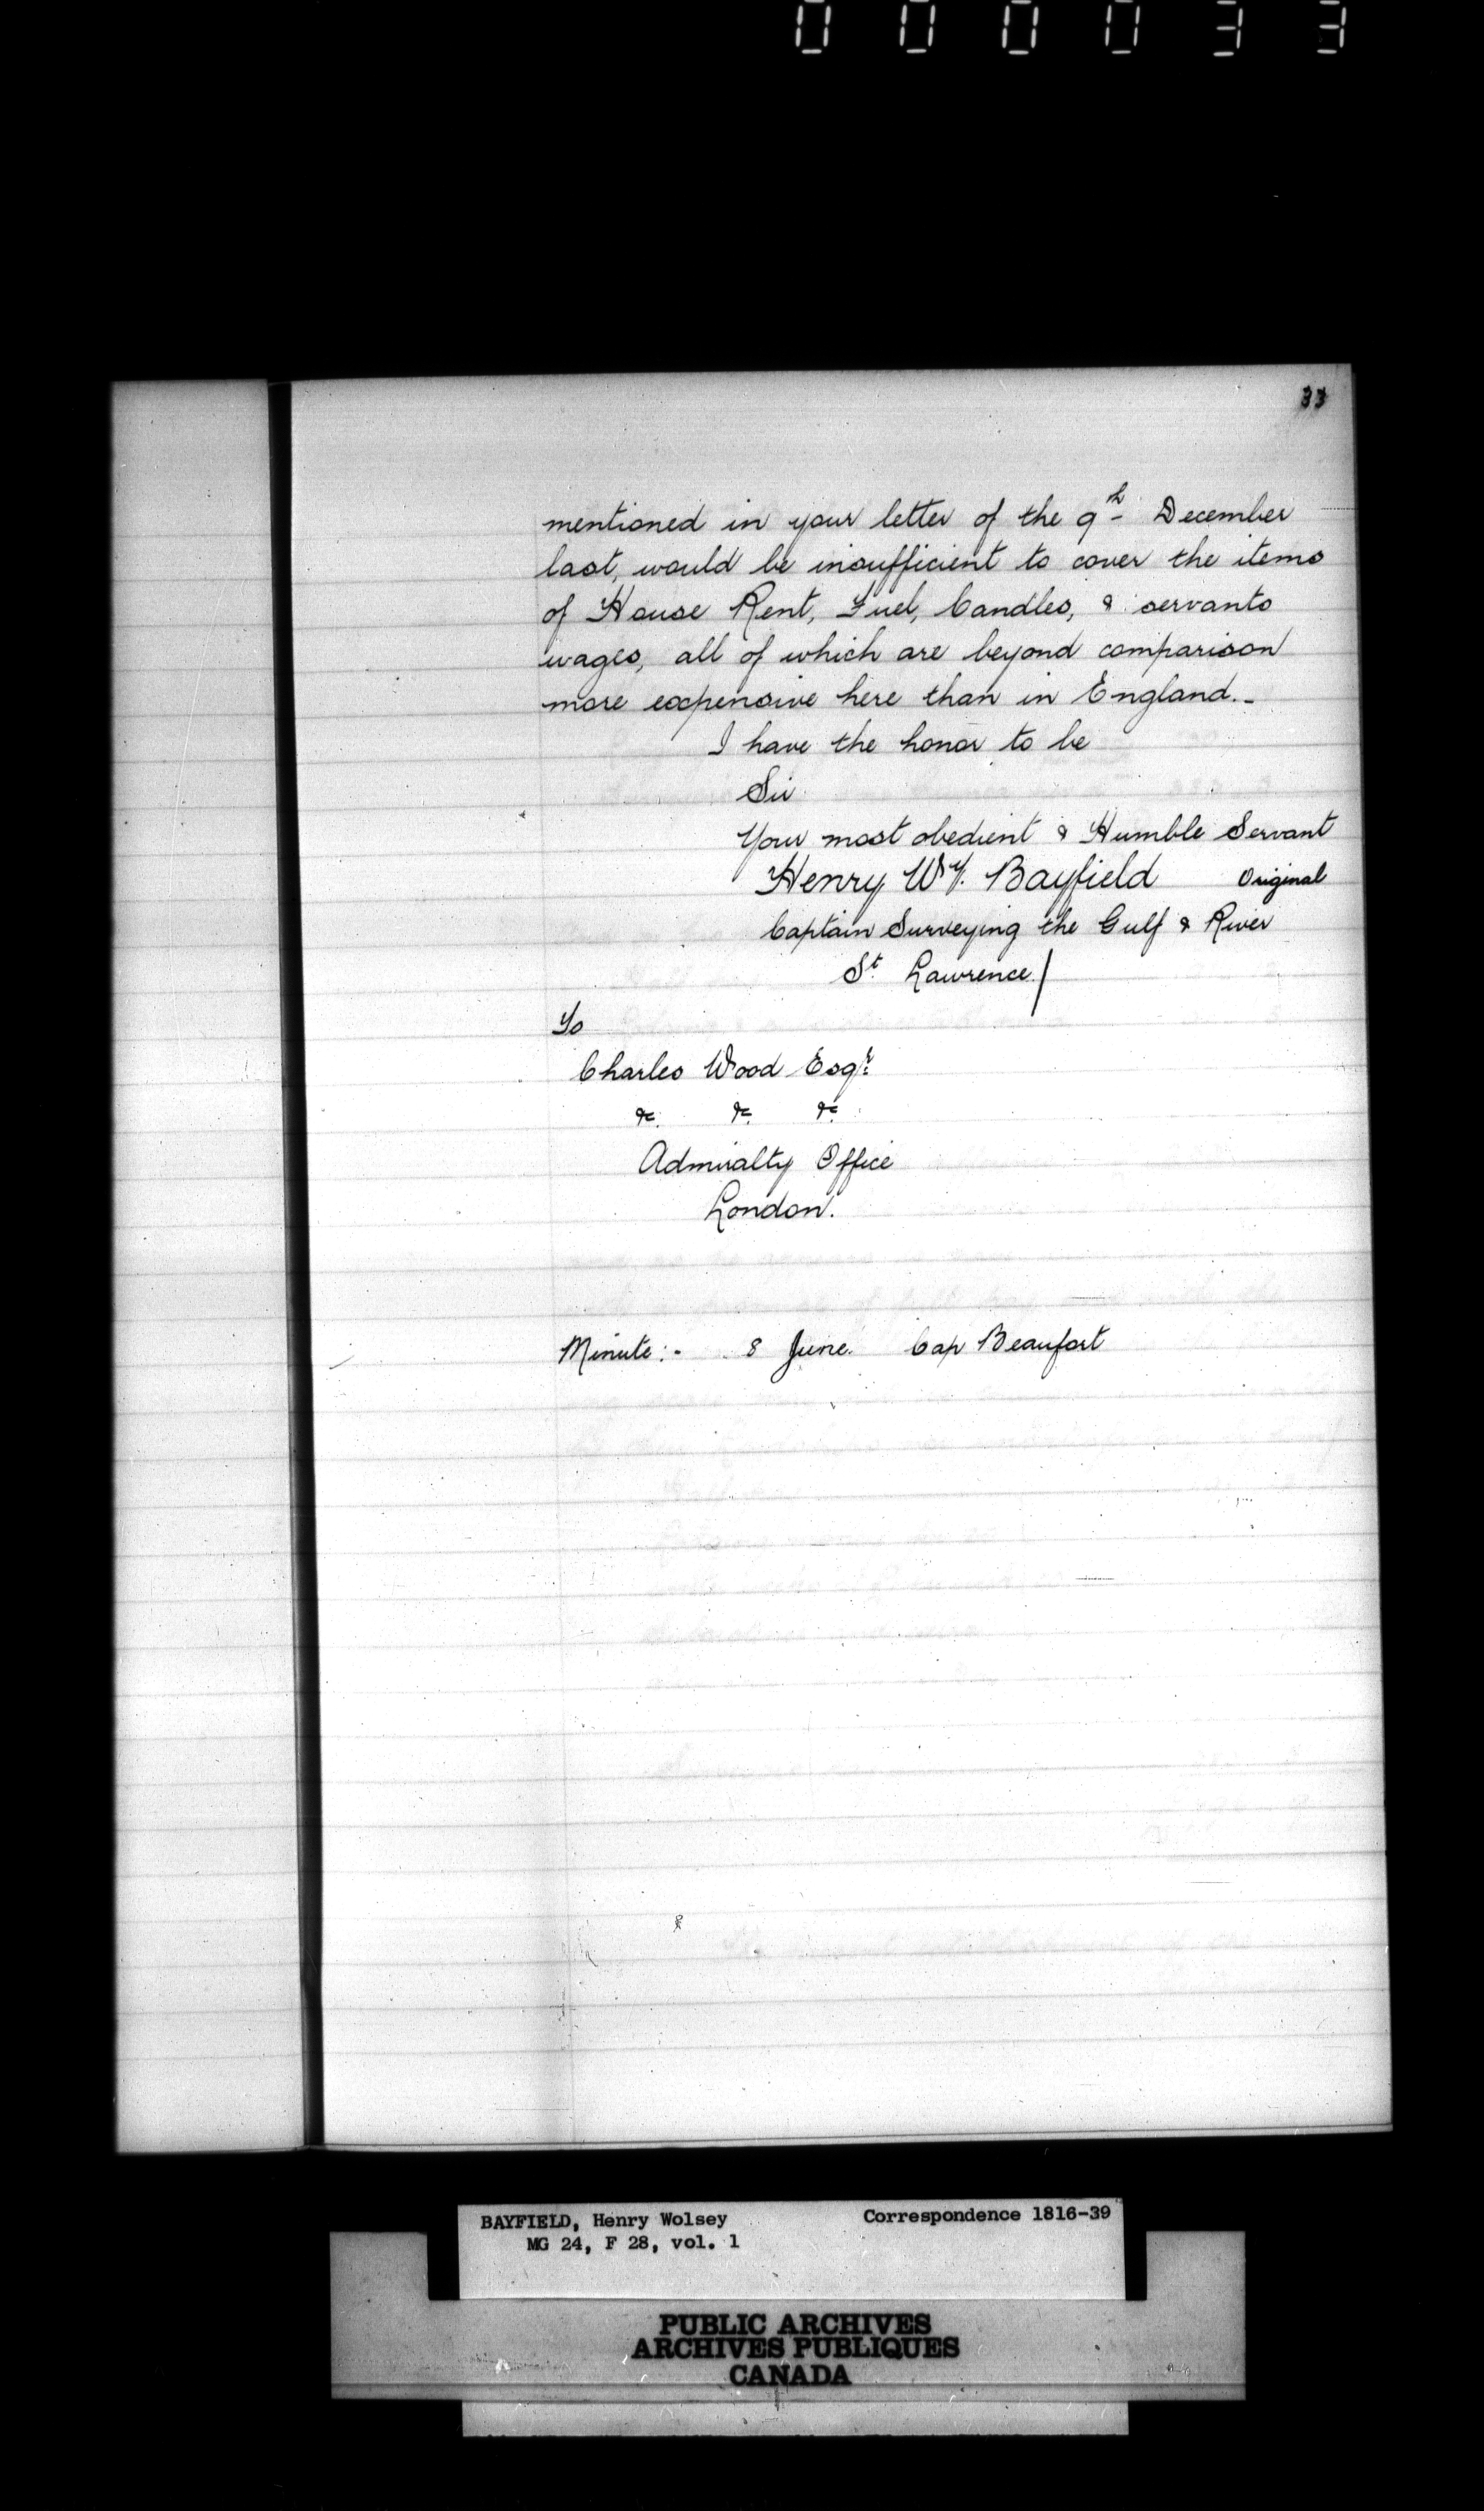 000033
33
mentioned in your letter of the 9th December
last, would be insufficient to cover the items
of House Rent, Fuel, Candles, & servants
wages, all of which are beyond comparison
more expensive here than in England.-
I have the honor to be
Sir
Your most obedient & Humble Servant
Henry Wy. Bayfield Original
Captain Surveying the Gulf & River
St. Lawrence/
To
Charles Wood Esqr:
&c. &c. &c.
Admiralty Office
London.
Minute:- 8 June. Cap Beaufort
BAYFIELD, Henry Wolsey Correspondence 1816-39
MG 24, F 28, vol. 1
PUBLIC ARCHIVES
ARCHIVES PUBLIQUES
CANADA